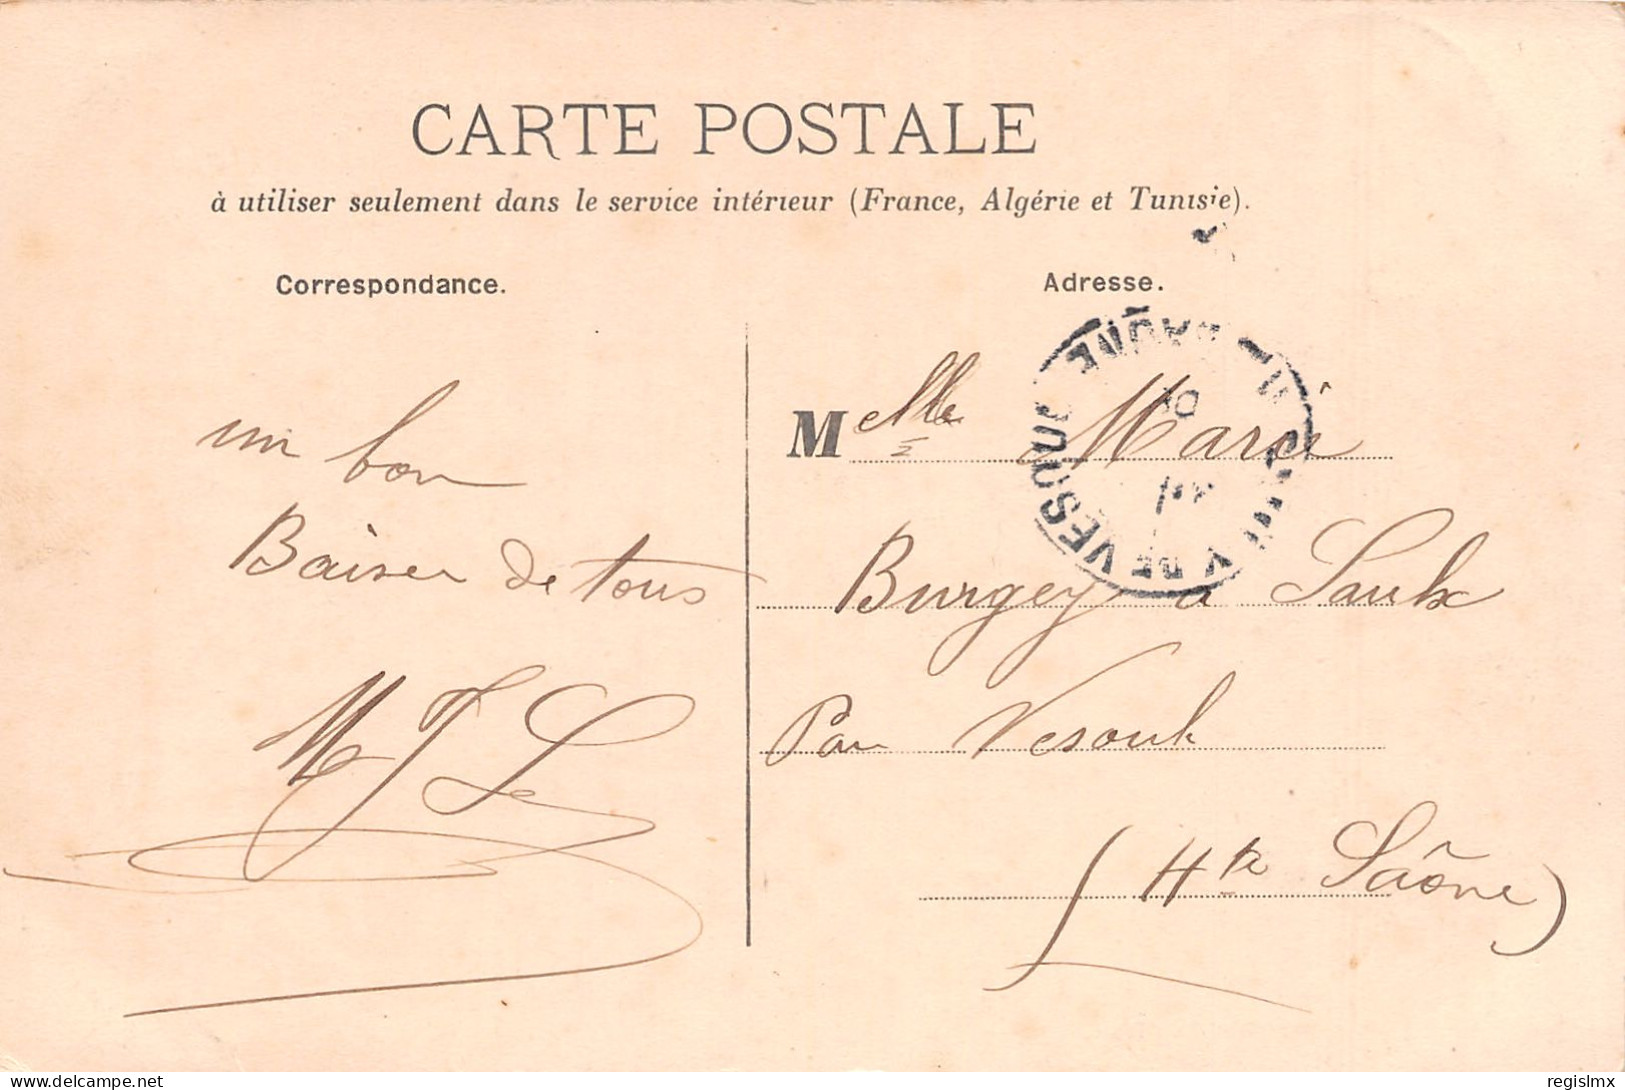 CARTE POSTALE
à utiliser seulement dans le service intérieur (France, Algérie et Tunisie).
Correspondance.
un bon
Baiser de tous
M J L
Adresse.
Melle Marie
Burgey a Saulx
Par Vesoul
(Hte Saône)
VESOUL
SAÔNE
delcampe.net
regislmx